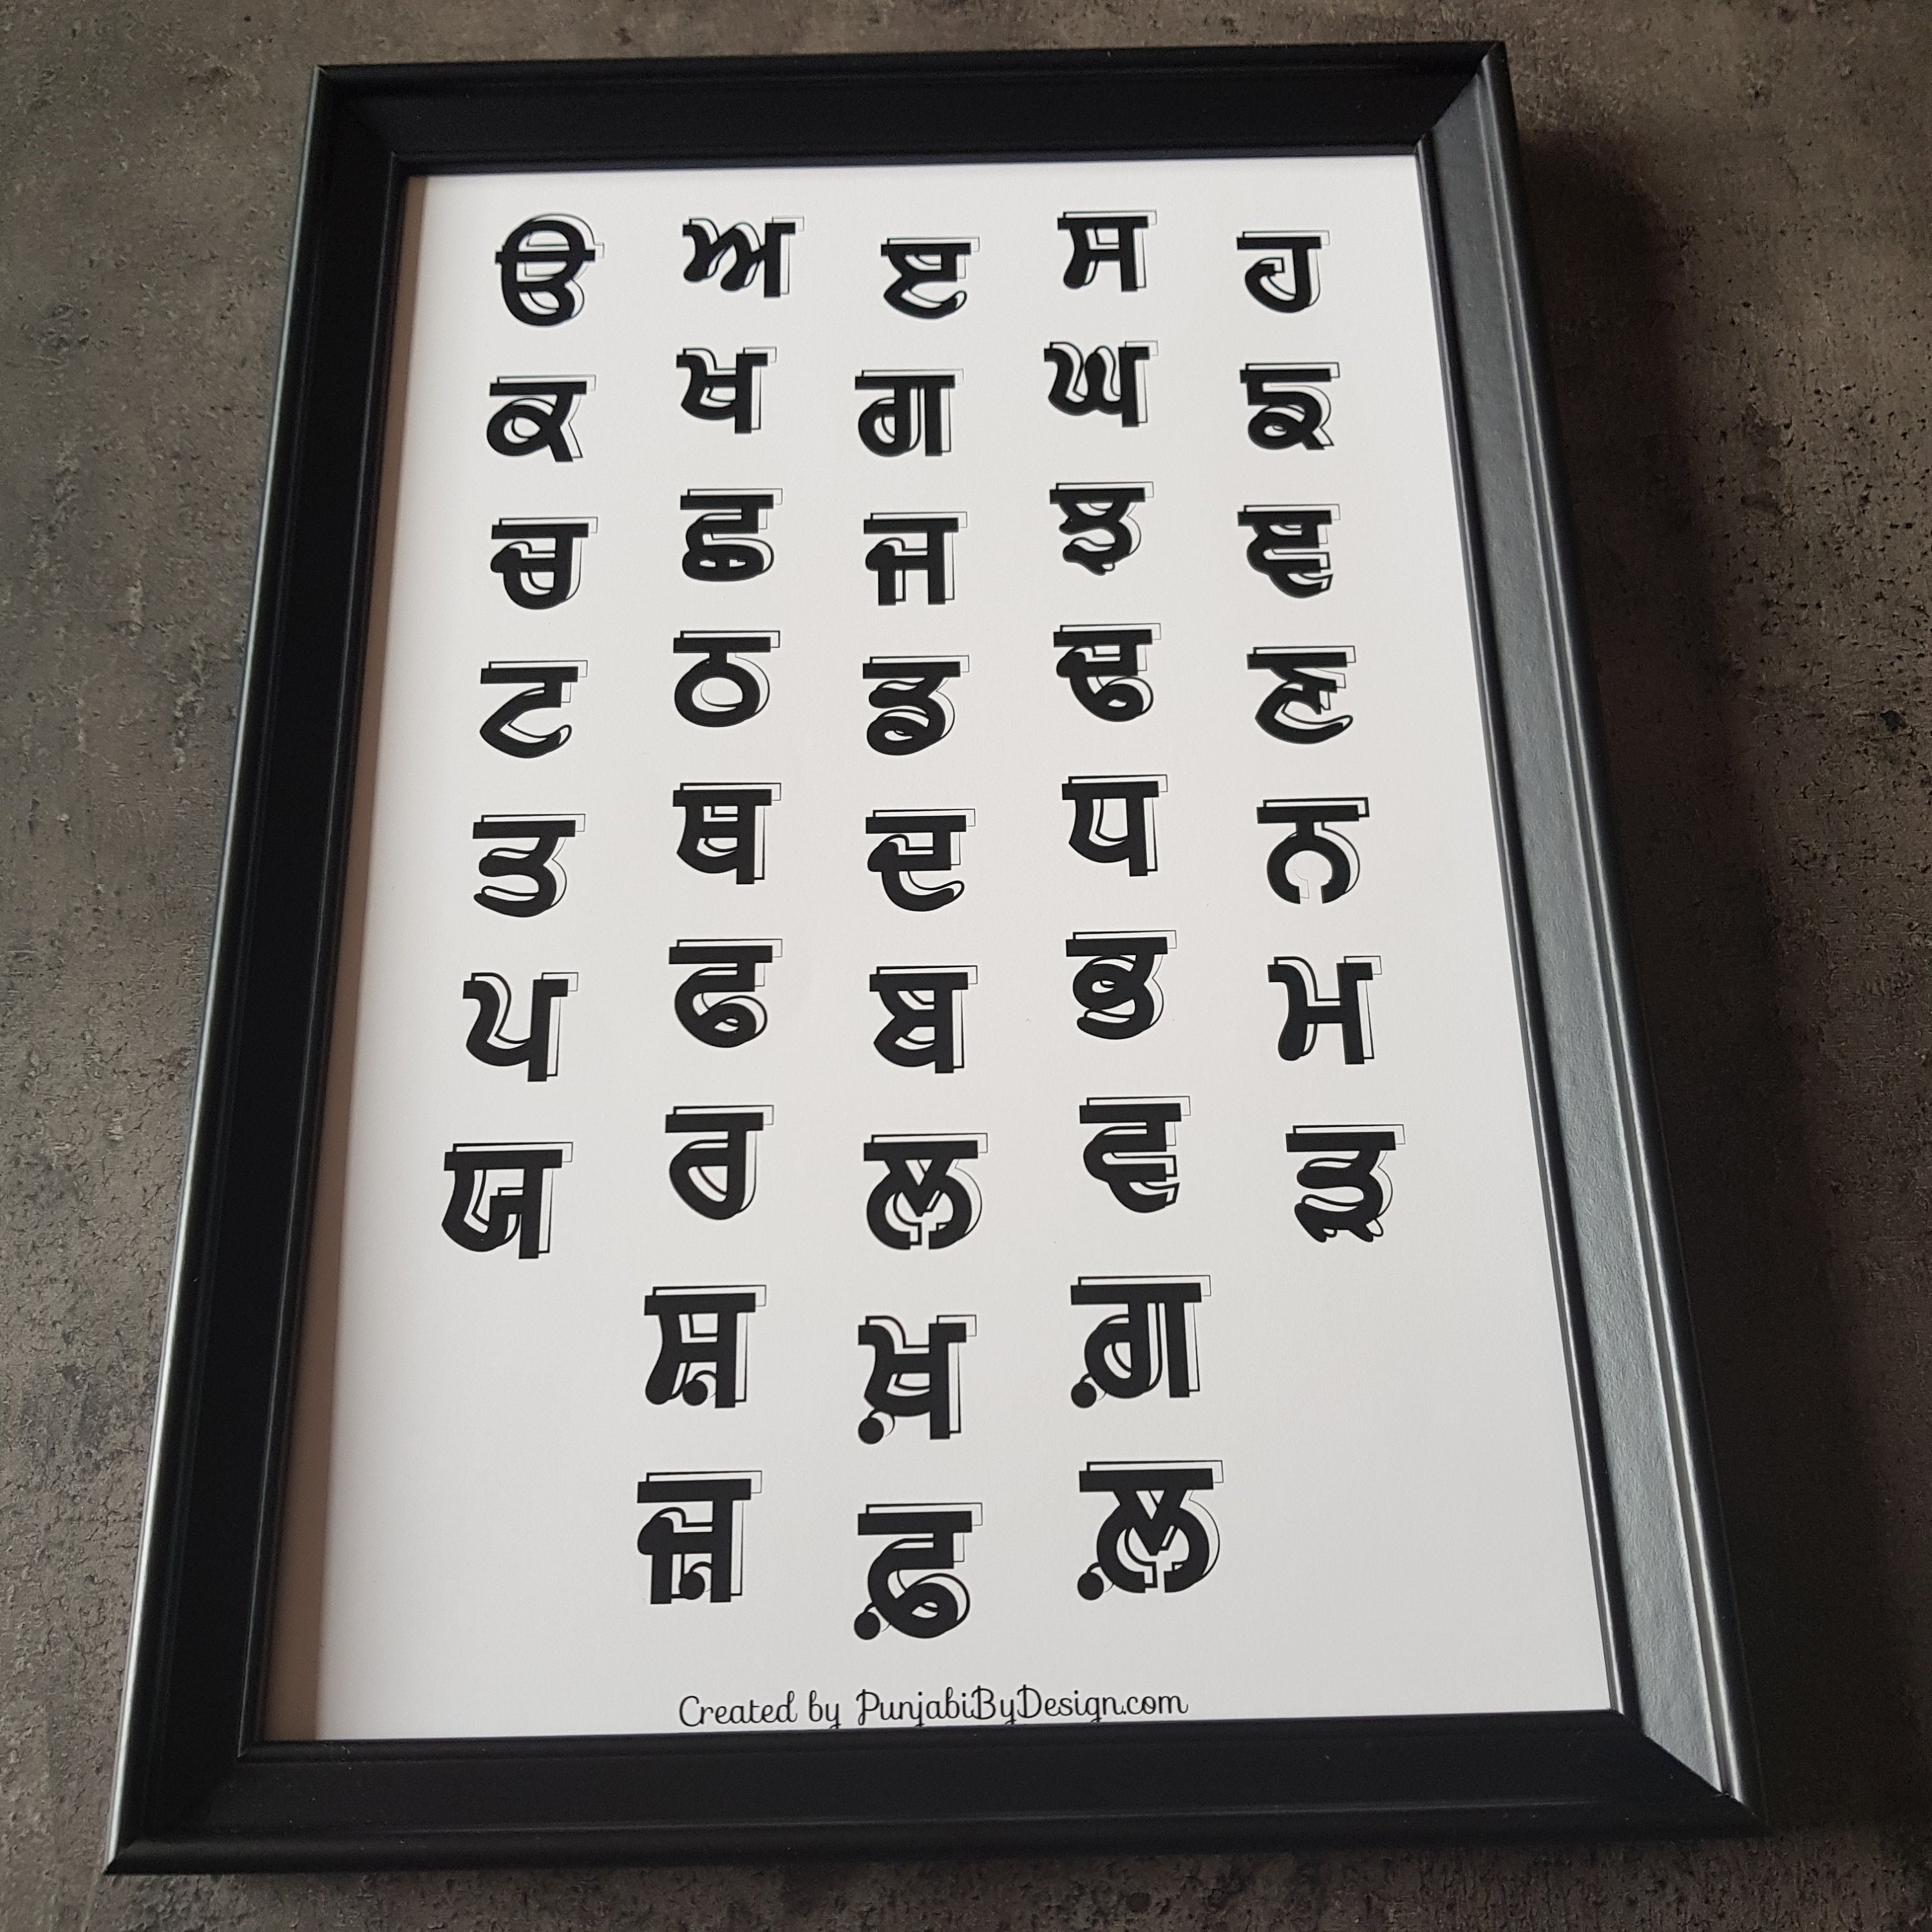 ੳ ਅ ੲ ਸ ਹ
ਕ ਖ ਗ ਘ ਙ
ਚ ਛ ਜ ਝ ਞ
ਟ ਠ ਡ ਢ ਣ
ਤ ਥ ਦ ਧ ਨ
ਪ ਫ ਬ ਭ ਮ
ਯ ਰ ਲ ਵ ੜ
ਸ਼ ਖ਼ ਗ਼
ਜ਼ ਫ਼ ਲ਼
Created by PunjabiByDesign.com